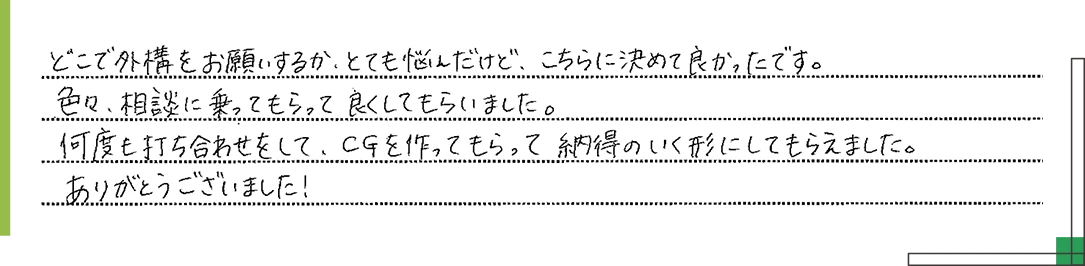 どこで外構をお願いするか、とても悩んだけど、こちらに決めて良かったです。
色々、相談に乗ってもらって良くしてもらいました。
何度も打ち合わせをして、CGを作ってもらって納得のいく形にしてもらえました。
ありがとうございました!